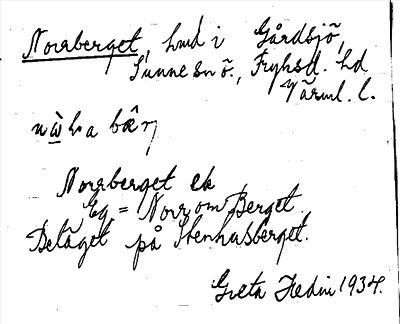 Norrberget, hmd i Gårdsjö,
Sunne sn ö., Fryksd. hd
Värml. l.
Norrberget ek
Eg. = Norr om Berget.
Beläget på Stenhusberget.
Greta Hedin 1934.